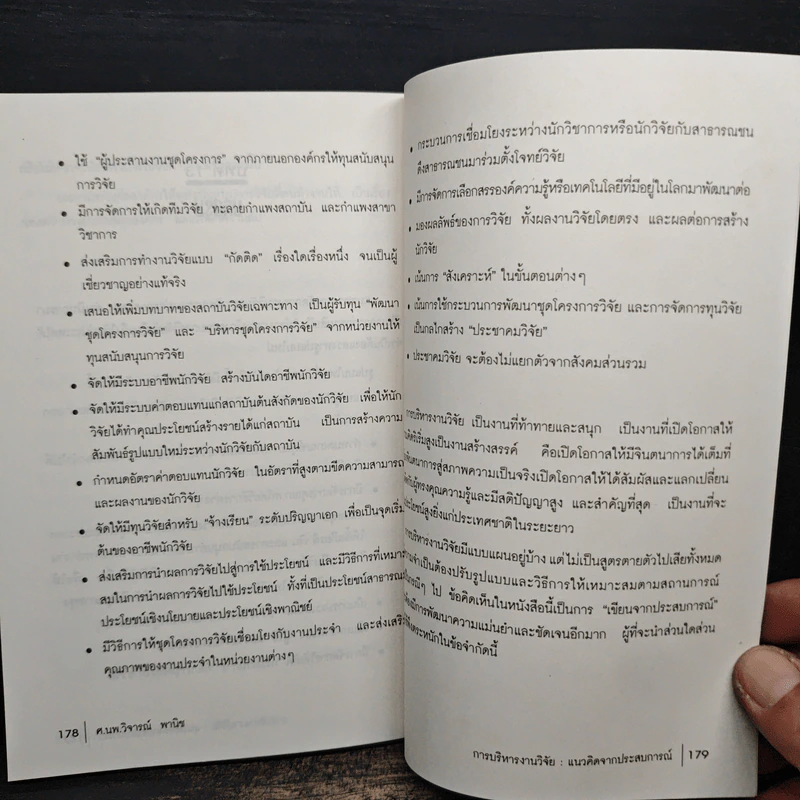 • ใช้ “ผู้ประสานงานชุดโครงการ” จากภายนอกองค์กรให้ทุนสนับสนุน
การวิจัย
• มีการจัดการให้เกิดทีมวิจัย ทะลายกำแพงสถาบัน และกำแพงสาขา
วิชาการ
• ส่งเสริมการทำงานวิจัยแบบ “กัดติด” เรื่องใดเรื่องหนึ่ง จนเป็นผู้
เชี่ยวชาญอย่างแท้จริง
• เสนอให้เพิ่มบทบาทของสถาบันวิจัยเฉพาะทาง เป็นผู้รับทุน “พัฒนา
ชุดโครงการวิจัย” และ “บริหารชุดโครงการวิจัย” จากหน่วยงานให้
ทุนสนับสนุนการวิจัย
• จัดให้มีระบบอาชีพนักวิจัย สร้างบันไดอาชีพนักวิจัย
• จัดให้มีระบบค่าตอบแทนแก่สถาบันต้นสังกัดของนักวิจัย เพื่อให้นัก
วิจัยได้ทำคุณประโยชน์สร้างรายได้แก่สถาบัน เป็นการสร้างความ
สัมพันธ์รูปแบบใหม่ระหว่างนักวิจัยกับสถาบัน
• กำหนดอัตราค่าตอบแทนนักวิจัย ในอัตราที่สูงตามขีดความสามารถ
และผลงานของนักวิจัย
• จัดให้มีทุนวิจัยสำหรับ “จ้างเรียน” ระดับปริญญาเอก เพื่อเป็นจุดเริ่ม
ต้นของอาชีพนักวิจัย
• ส่งเสริมการนำผลการวิจัยไปสู่การใช้ประโยชน์ และมีวิธีการที่เหมาะ
สมในการนำผลการวิจัยไปใช้ประโยชน์ ทั้งที่เป็นประโยชน์สาธารณะ
ประโยชน์เชิงนโยบายและประโยชน์เชิงพาณิชย์
• มีวิธีการให้ชุดโครงการวิจัยเชื่อมโยงกับงานประจำ และส่งเสริม
คุณภาพของงานประจำในหน่วยงานต่างๆ
178 | ศ.นพ.วิจารณ์ พานิช
• กระบวนการเชื่อมโยงระหว่างนักวิชาการหรือนักวิจัยกับสาธารณชน
ดึงสาธารณชนมาร่วมตั้งโจทย์วิจัย
• มีการจัดการเลือกสรรองค์ความรู้หรือเทคโนโลยีที่มีอยู่ในโลกมาพัฒนาต่อ
• มองผลลัพธ์ของการวิจัย ทั้งผลงานวิจัยโดยตรง และผลต่อการสร้าง
นักวิจัย
• เน้นการ “สังเคราะห์” ในขั้นตอนต่างๆ
• เน้นการใช้กระบวนการพัฒนาชุดโครงการวิจัย และการจัดการทุนวิจัย
เป็นกลไกสร้าง “ประชาคมวิจัย”
• ประชาคมวิจัย จะต้องไม่แยกตัวจากสังคมส่วนรวม
การบริหารงานวิจัย เป็นงานที่ท้าทายและสนุก เป็นงานที่เปิดโอกาสให้
ริเริ่มสูงเป็นงานสร้างสรรค์ คือเปิดโอกาสให้มีจินตนาการได้เต็มที่
จินตนาการสู่สภาพความเป็นจริงเปิดโอกาสให้ได้สัมผัสและแลกเปลี่ยน
กับผู้ทรงคุณความรู้และมีสติปัญญาสูง และสำคัญที่สุด เป็นงานที่จะ
ประโยชน์สูงยิ่งแก่ประเทศชาติในระยะยาว
การบริหารงานวิจัยมีแบบแผนอยู่บ้าง แต่ไม่เป็นสูตรตายตัวไปเสียทั้งหมด
จำเป็นต้องปรับรูปแบบและวิธีการให้เหมาะสมตามสถานการณ์
ไป ข้อคิดเห็นในหนังสือนี้เป็นการ “เขียนจากประสบการณ์”
มีการพัฒนาความแม่นยำและชัดเจนอีกมาก ผู้ที่จะนำส่วนใดส่วน
ตระหนักในข้อจำกัดนี้
การบริหารงานวิจัย : แนวคิดจากประสบการณ์ | 179